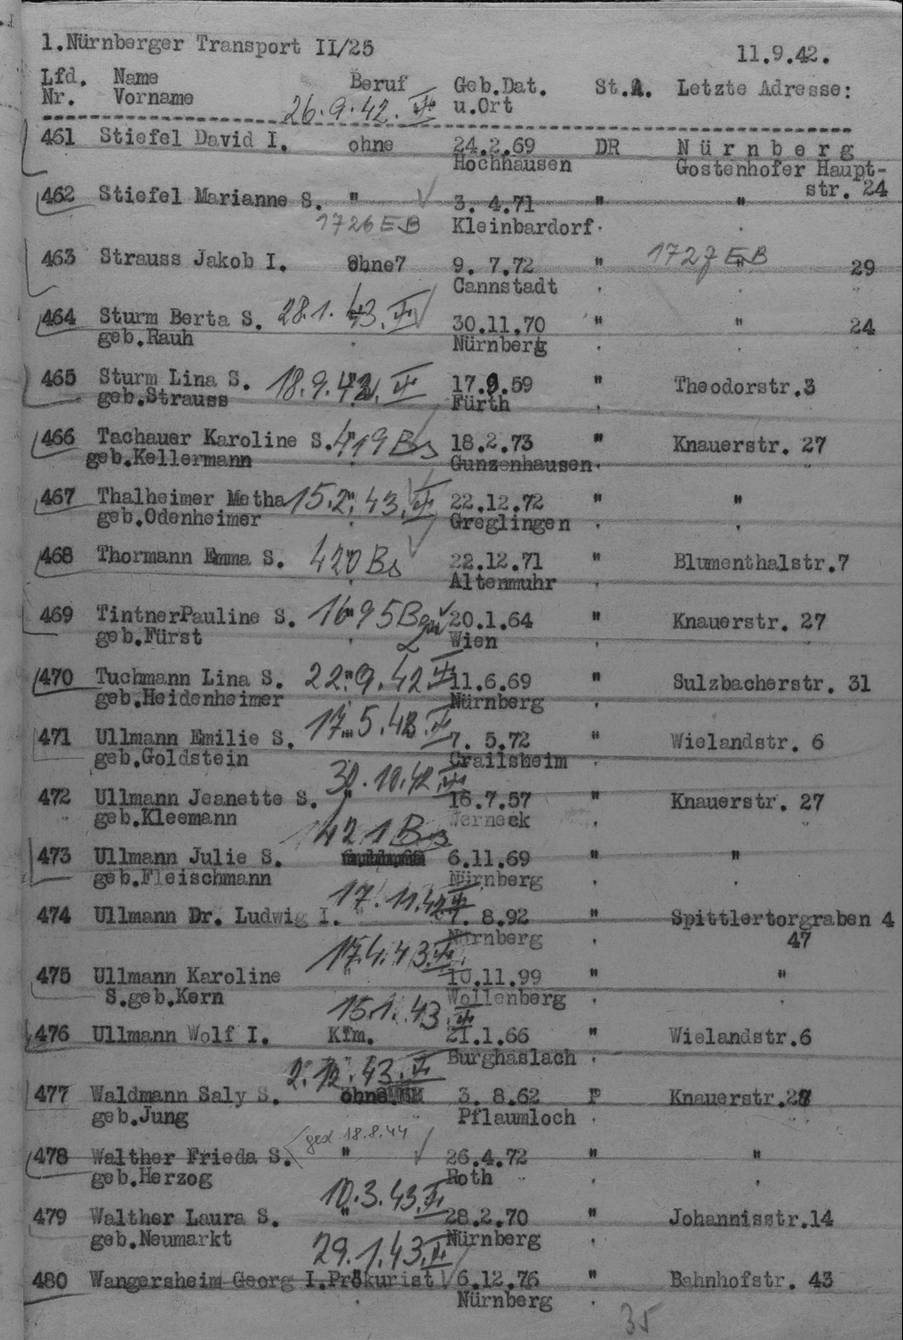 1.Nürnberger Transport II/25 11.9.42.
Lfd. Name Beruf Geb.Dat. St.A. Letzte Adresse:
Nr. Vorname 26.9.42. u.Ort
461 Stiefel David I. ohne 24.2.69 DR Nürnberg
Hochhausen Gostenhofer Haupt-
str. 24
462 Stiefel Marianne S. " 3. 4.71 " "
1726 EB Kleinbardorf.
463 Strauss Jakob I. ohne7 9. 7.72 " 1727 EB " 29
Cannstadt
464 Sturm Berta S. 28.1.43. 30.11.70 " " 24
geb.Rauh Nürnberg
465 Sturm Lina S. 18.9.42. 17.9.59 " Theodorstr.3
geb.Strauss Fürth
466 Tachauer Karoline S. 419 Bs 18.2.73 " Knauerstr. 27
geb.Kellermann Gunzenhausen.
467 Thalheimer Metha 15.2.43. 22.12.72 " "
geb.Odenheimer Greglingen
468 Thormann Emma S. 420 Bs 22.12.71 " Blumenthalstr.7
Altenmuhr
469 TintnerPauline S. 1695 B 20.1.64 " Knauerstr. 27
geb.Fürst Wien
470 Tuchmann Lina S. 22.9.42 11.6.69 " Sulzbacherstr. 31
geb.Heidenheimer Nürnberg
471 Ullmann Emilie S. 17.5.43. 7. 5.72 " Wielandstr. 6
geb.Goldstein Crailsheim
30.10.42.
472 Ullmann Jeanette S. " 16.7.57 " Knauerstr. 27
geb.Kleemann Berneck
421 Bs
473 Ullmann Julie S. 6.11.69 " "
geb.Fleischmann Nürnberg
17.11.42
474 Ullmann Dr. Ludwig I. 8.92 " Spittlertorgraben 4
Nürnberg 47
17.4.43.
475 Ullmann Karoline 10.11.99 " "
S.geb.Kern Wollenberg
15.1.43.
476 Ullmann Wolf I. Kfm. 21.1.66 " Wielandstr.6
Burghaslach
2.12.43.
477 Waldmann Saly S. ohne 3. 8.62 P Knauerstr.27
geb.Jung Pflaumloch
18.8.44
478 Walther Frieda S. " 26.4.72 " "
geb.Herzog Roth
10.3.43.
479 Walther Laura S. " 28.2.70 " Johannisstr.14
geb.Neumarkt Nürnberg
29.1.43.
480 Wangersheim Georg I.Prokurist 6.12.76 " Bahnhofstr. 43
Nürnberg
35